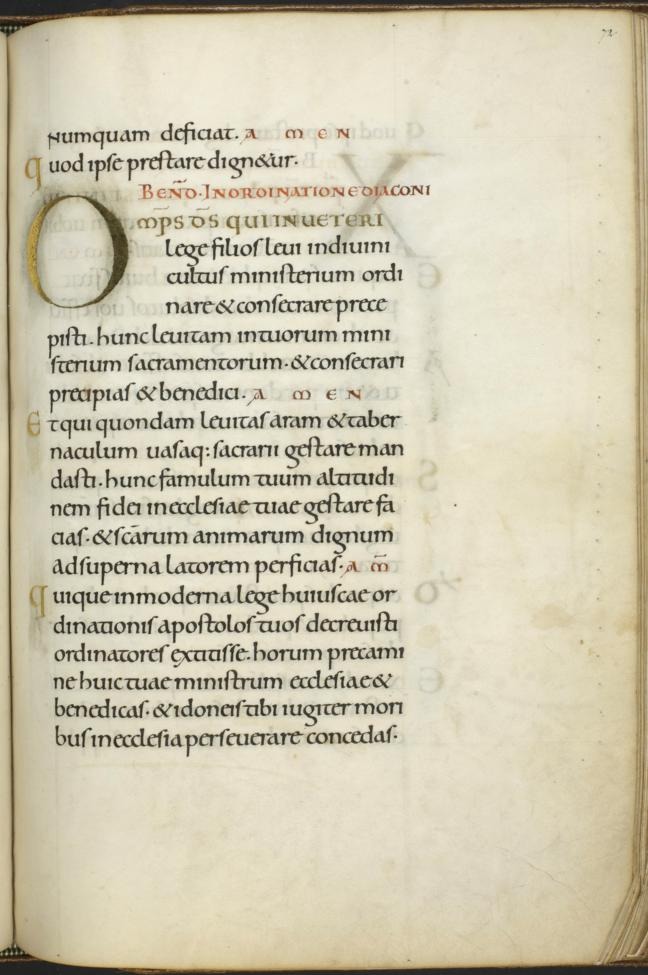 72
numquam deficiat. A M E N
quod ipse prestare dign&ur.
BEN̄D. IN ORDINATIONE DIACONI
Om̄PS D̄S QUI IN UETERI
lege filios leui indiuini
cultus ministerium ordi
nare & consecrare prece
pisti. hunc leuitam intuorum mini
sterium sacramentorum. & consecrari
precipias & benedici. A M E N
Et qui quondam leuitas aram & taber
naculum uasaq: sacrarii gestare man
dasti. hunc famulum tuum altitudi
nem fidei in ecclesiae tuae gestare fa
cias. & scārum animarum dignum
ad superna latorem perficias. A M̄
Quique in moderna lege huiuscae or
dinationis apostolos tuos decreuisti
ordinatores extitisse. horum precami
ne huic tuae ministrum ecclesiae &
benedicas. & idoneis tibi iugiter mori
bus in ecclesia perseuerare concedas.